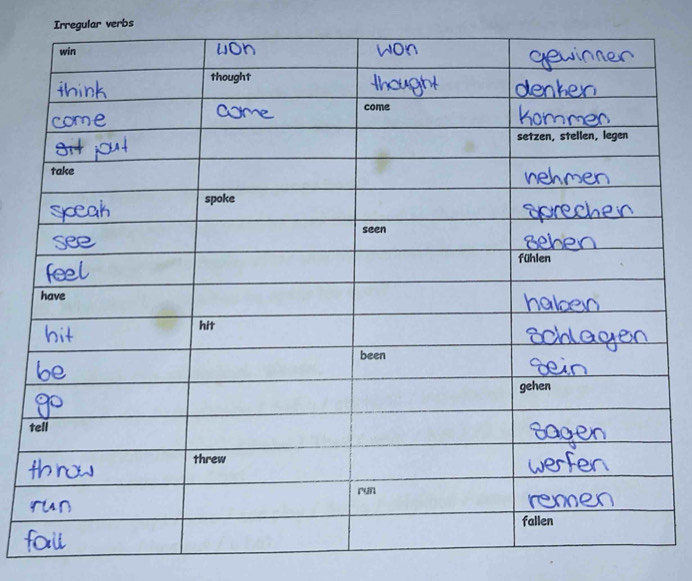 Irregular verbs
win won won gewinnen
think thought thought denken
come come come kommen
put setzen, stellen, legen
take nehmen
speak spoke sprechen
see seen sehen
feel fühlen
have haben
hit hit schlagen
be been sein
go gehen
tell sagen
throw threw werfen
run run rennen
fall fallen